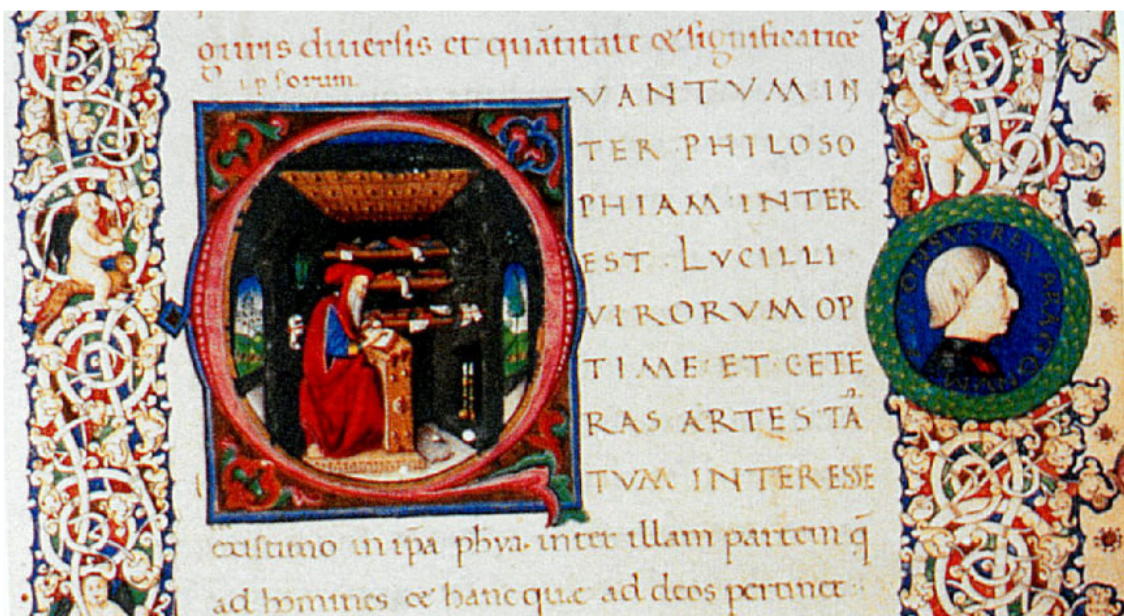 guris diuersis et quātitate & significatiōe
ipsorum.
QVANTVM IN
TER PHILOSO
PHIAM INTER
EST LVCILLI
VIRORVM OP
TIME ET CETE
RAS ARTES TĀ
TVM INTERESSE
existimo in ipa phya. inter illam partem q̄
ad homines & hanc quae ad deos pertinet
REX ARAGONVM